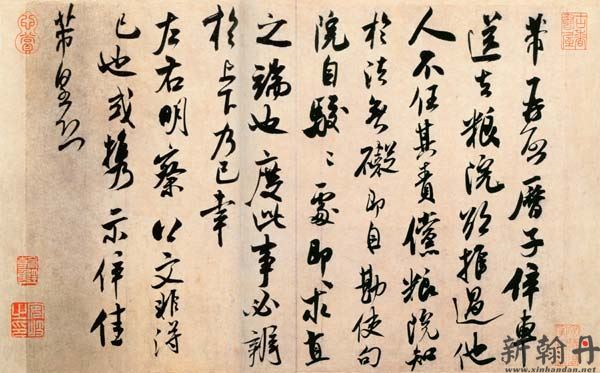 芾再啓曆子倅車
送去粮院欲推過他
人不任其責儻粮院知
於法無礙即自勘使句
院自駮〻處即求直
之端也度此事必辨
於上下乃已幸
左右明察以文非得
已也或攜示倅佳
芾皇恐
新翰丹
www.xinhandan.net